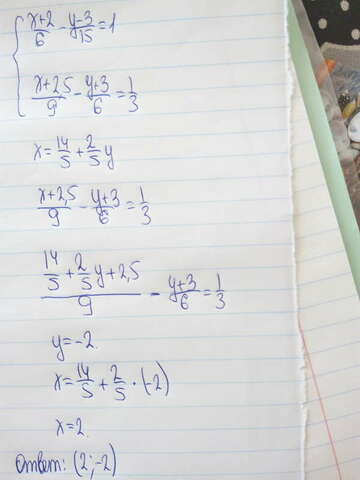 { (x+2)/6 - (y-3)/15 = 1
(x+2,5)/9 - (y+3)/6 = 1/3
x = 14/5 + 2/5 y
(x+2,5)/9 - (y+3)/6 = 1/3
(14/5 + 2/5 y + 2,5)/9 - (y+3)/6 = 1/3
y = -2
x = 14/5 + 2/5 · (-2)
x = 2.
Ответ: (2; -2)